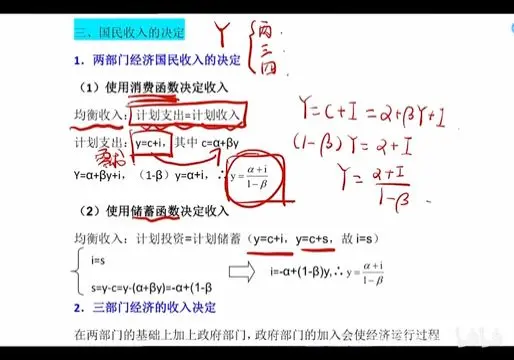 三、国民收入的决定
Y { 两.
三.
四.
1. 两部门经济国民收入的决定
(1) 使用消费函数决定收入
均衡收入: 计划支出=计划收入
计划支出: y=c+i, 其中 c=α+βy
Y=α+βy+i, (1-β) y=α+i, ∴ y=(α+i)/(1-β)
Y=C+I=α+βY+I
(1-β)Y=α+I
Y=(α+I)/(1-β)
(2) 使用储蓄函数决定收入
均衡收入: 计划投资=计划储蓄 (y=c+i, y=c+s, 故 i=s)
i=s
s=y-c=y-(α+βy)=-α+(1-β
i=-α+(1-β)y,∴ y=(α+i)/(1-β)
2. 三部门经济的收入决定
在两部门的基础上加上政府部门，政府部门的加入会使经济运行过程